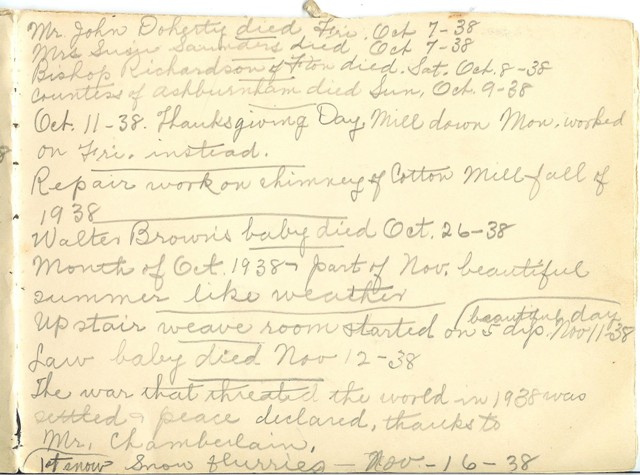 Mr. John Doherty died Fri. Oct 7-38
Mrs Susie Saunders died Oct 7-38
Bishop Richardson of F'ton died. Sat. Oct. 8-38
Countess of Ashburnham died Sun. Oct. 9-38
Oct. 11-38. Thanksgiving Day Mill down Mon. worked
on Fri. instead.
Repair work on chimney of Cotton Mill-fall of
1938
Walter Brown's baby died Oct. 26-38
Month of Oct. 1938 & part of Nov. beautiful
summer like weather
beautiful day
Up stair weave room started on 5 dys. Nov 11-38
Law baby died Nov 12-38
The war that threated the world in 1938 was
settled & peace declared, thanks to
Mr. Chamberlain.
1st snow Snow flurries - Nov - 16 - 38